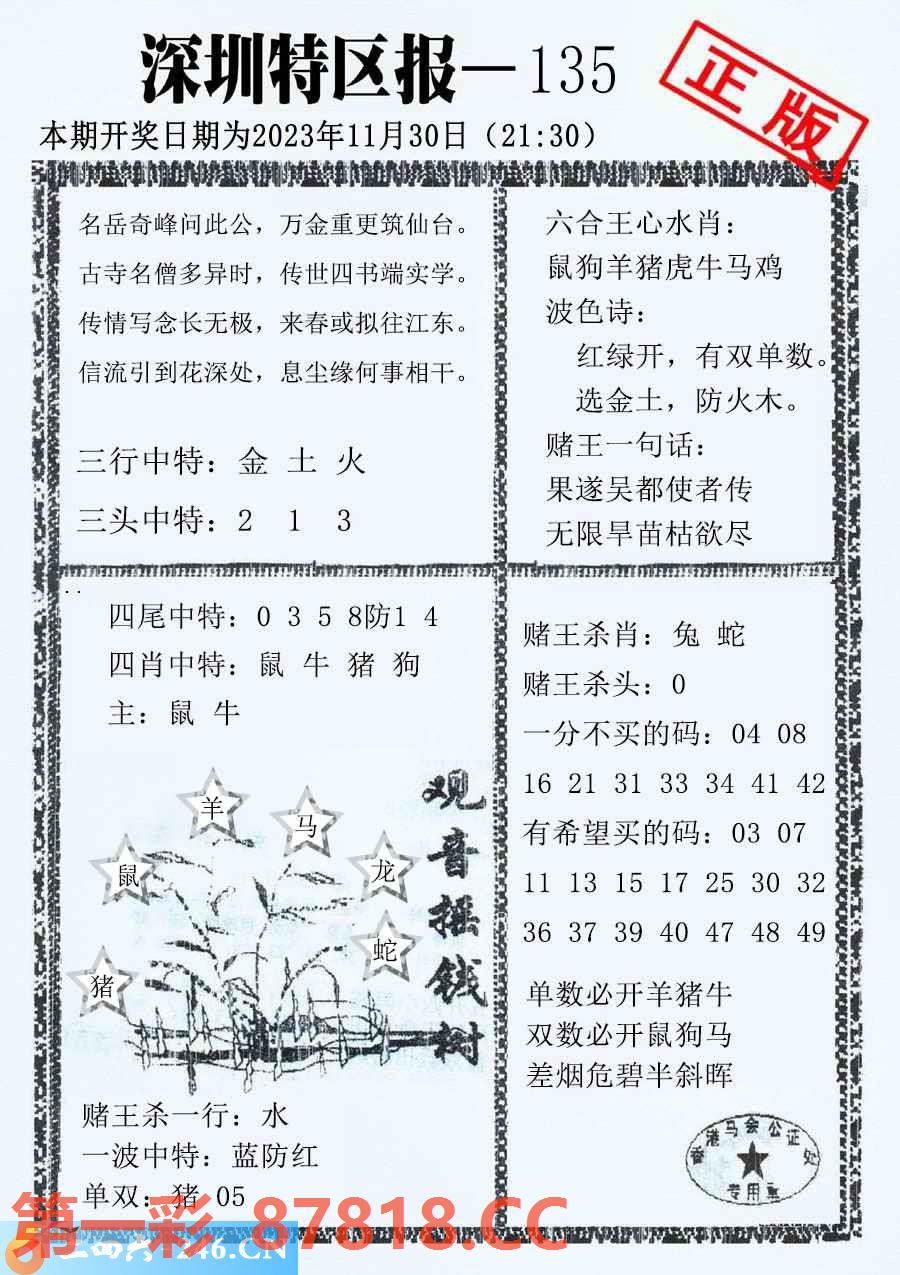 深圳特区报—135
正版
本期开奖日期为2023年11月30日（21:30）
名岳奇峰问此公，万金重更筑仙台。
古寺名僧多异时，传世四书端实学。
传情写念长无极，来春或拟往江东。
信流引到花深处，息尘缘何事相干。
三行中特：金 土 火
三头中特：2 1 3
六合王心水肖：
鼠狗羊猪虎牛马鸡
波色诗：
红绿开，有双单数。
选金土，防火木。
赌王一句话：
果遂吴都使者传
无限旱苗枯欲尽
四尾中特：0 3 5 8防1 4
四肖中特：鼠 牛 猪 狗
主：鼠 牛
羊
马
鼠
龙
蛇
猪
观音摇钱树
赌王杀一行：水
一波中特：蓝防红
单双：猪 05
赌王杀肖：兔 蛇
赌王杀头：0
一分不买的码：04 08
16 21 31 33 34 41 42
有希望买的码：03 07
11 13 15 17 25 30 32
36 37 39 40 47 48 49
单数必开羊猪牛
双数必开鼠狗马
差烟危碧半斜晖
香港马会公证处
专用章
第一彩 87818.CC
246.CN